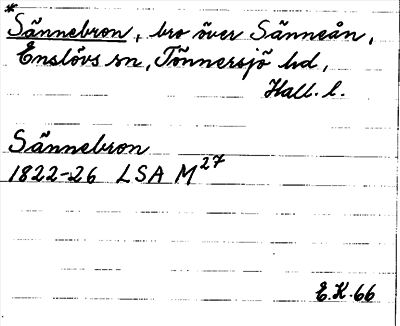 *Sännebron, bro över Sänneån,
Enslövs sn, Tönnersjö hd,
Hall. l.
Sännebron
1822-26 LSA M27
E.K.66